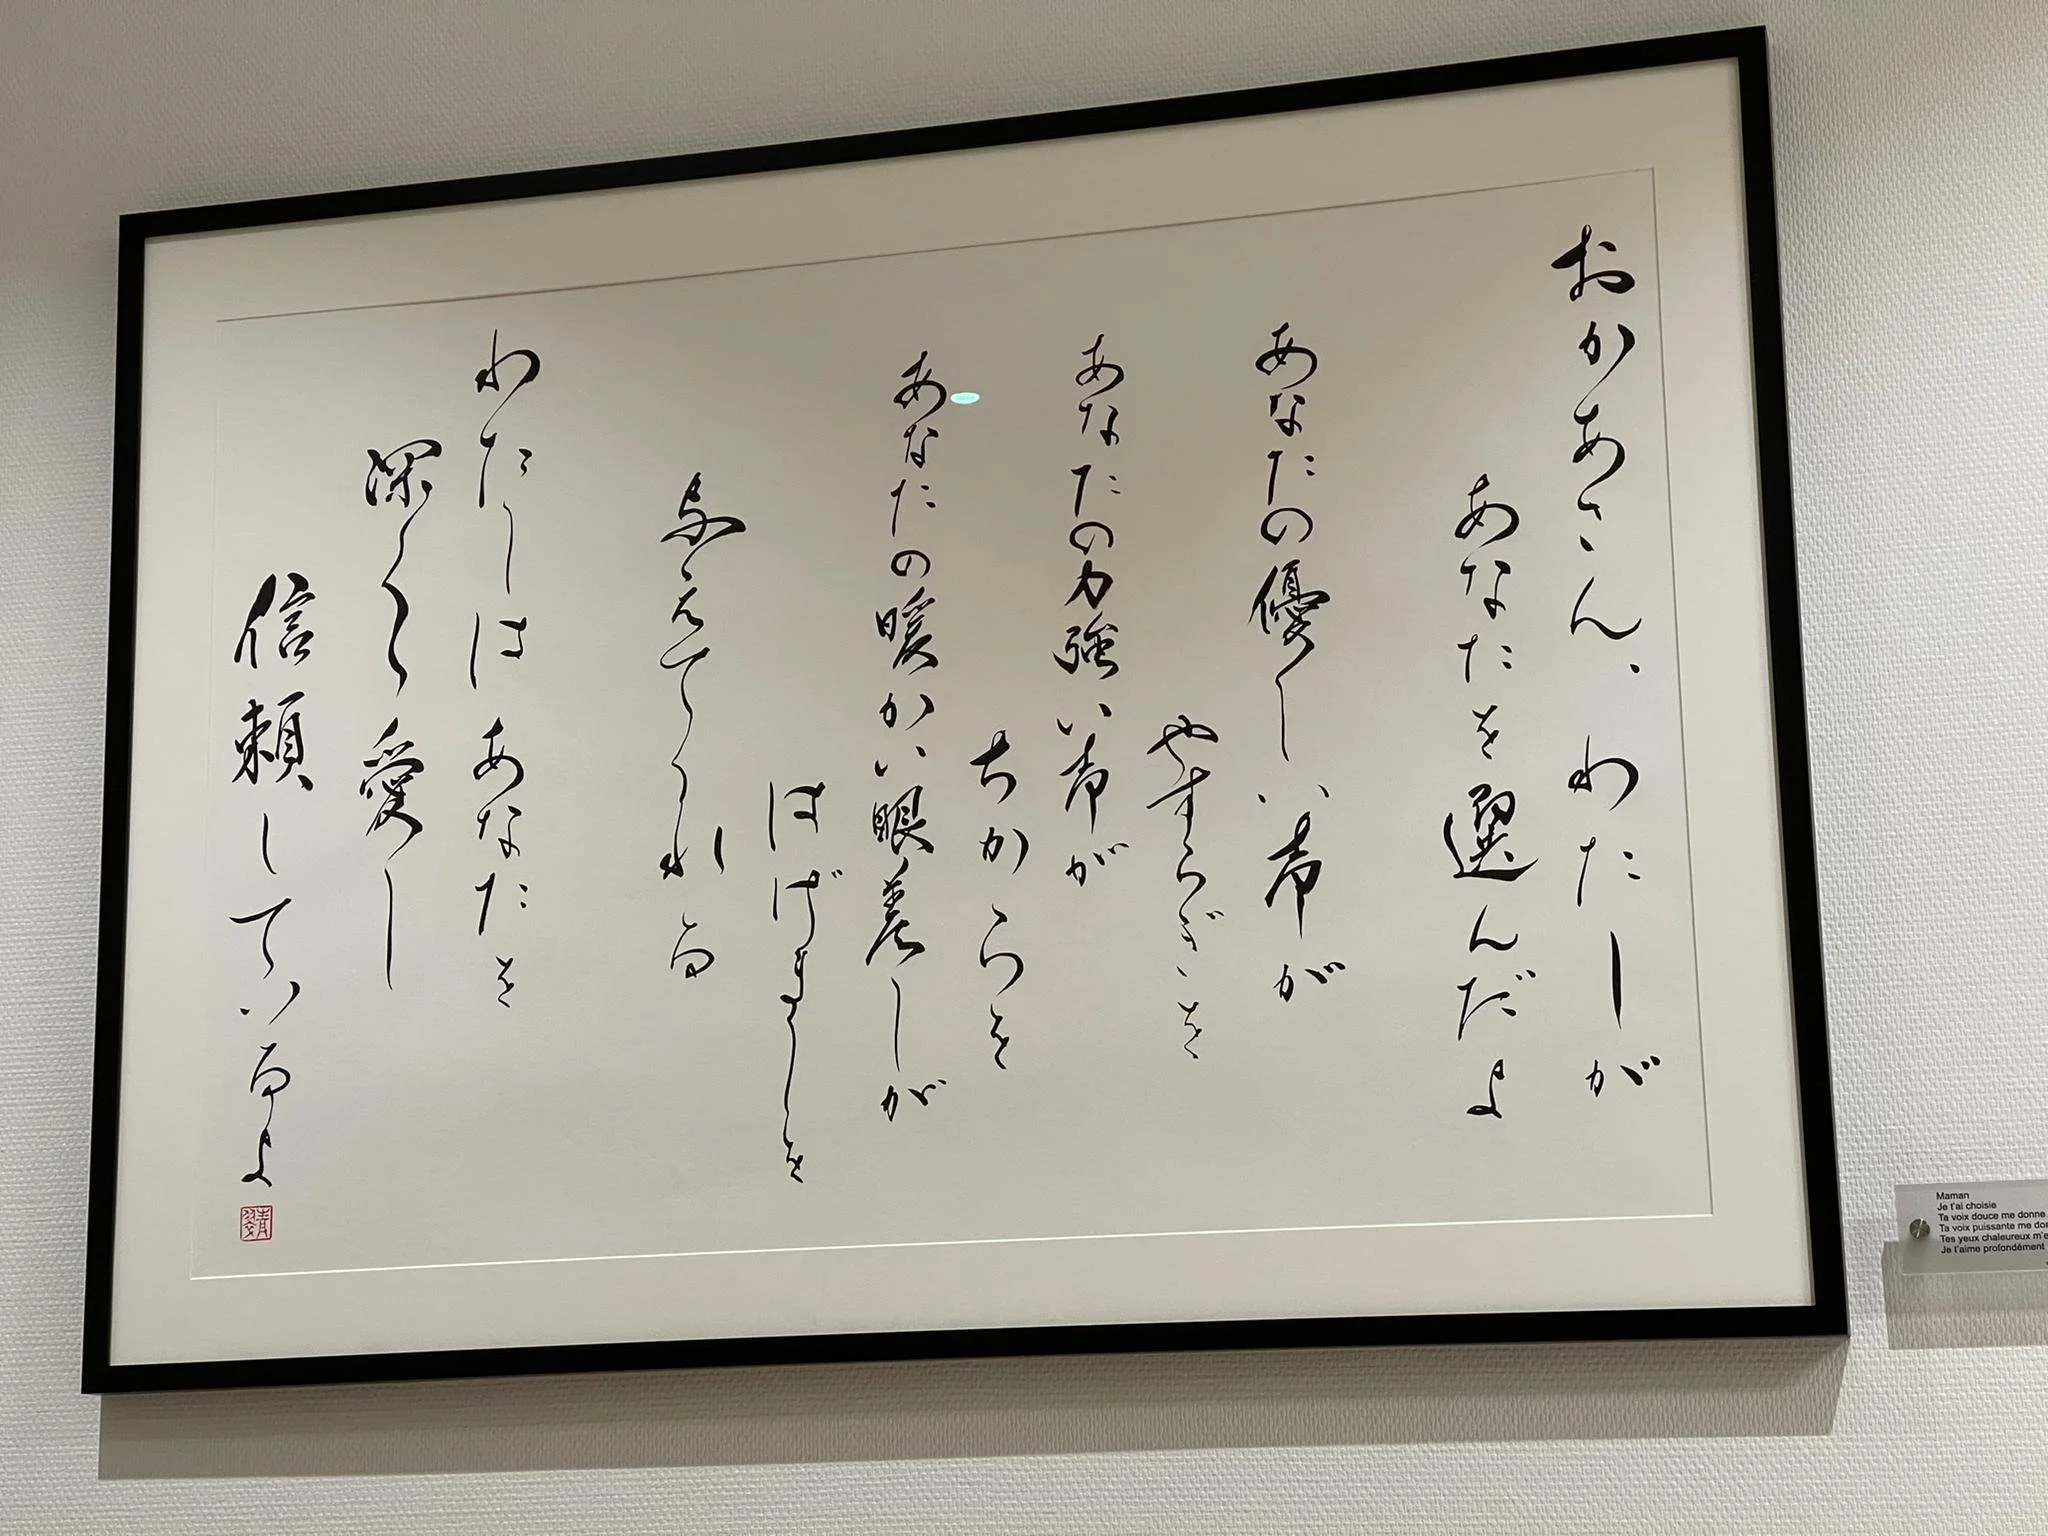 おかあさん、わたしが
あなたを選んだよ
あなたの優しい声が
やすらぎを
あなたの力強い声が
ちからを
あなたの暖かい眼差しが
はげましを
与えてくれる
わたしはあなたを
深く愛し
信頼しているよ
Maman
Je t'ai choisie
Ta voix douce me donne
Ta voix puissante me
Tes yeux chaleureux
Je t'aime profondément